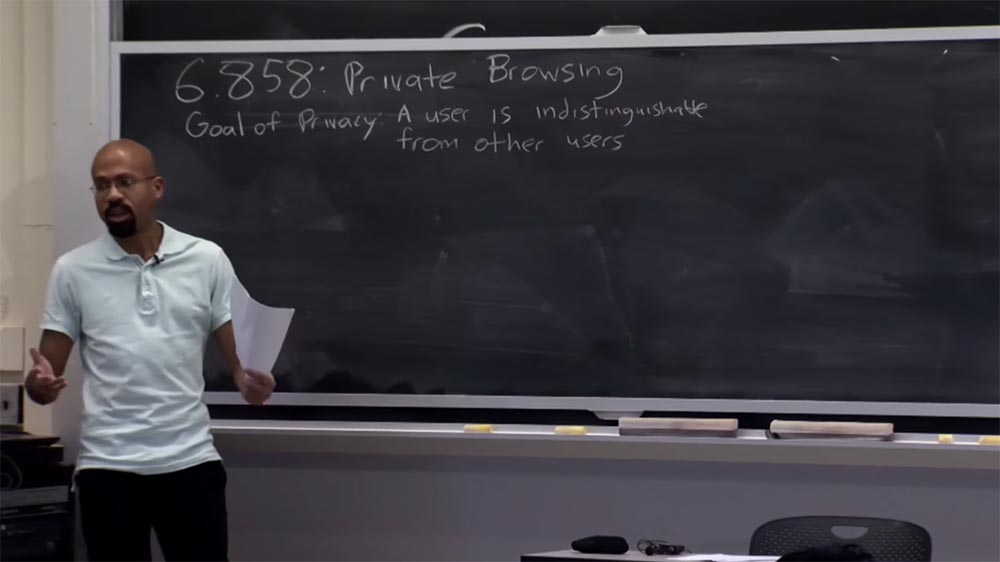 6.858: Private Browsing
Goal of Privacy: A user is indistinguishable
from other users